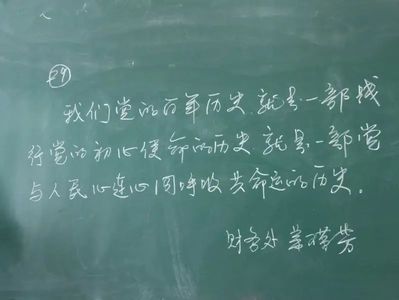 29
我们党的百年历史,就是一部践
行党的初心使命的历史,就是一部党
与人民心连心、同呼吸、共命运的历史。
财务处